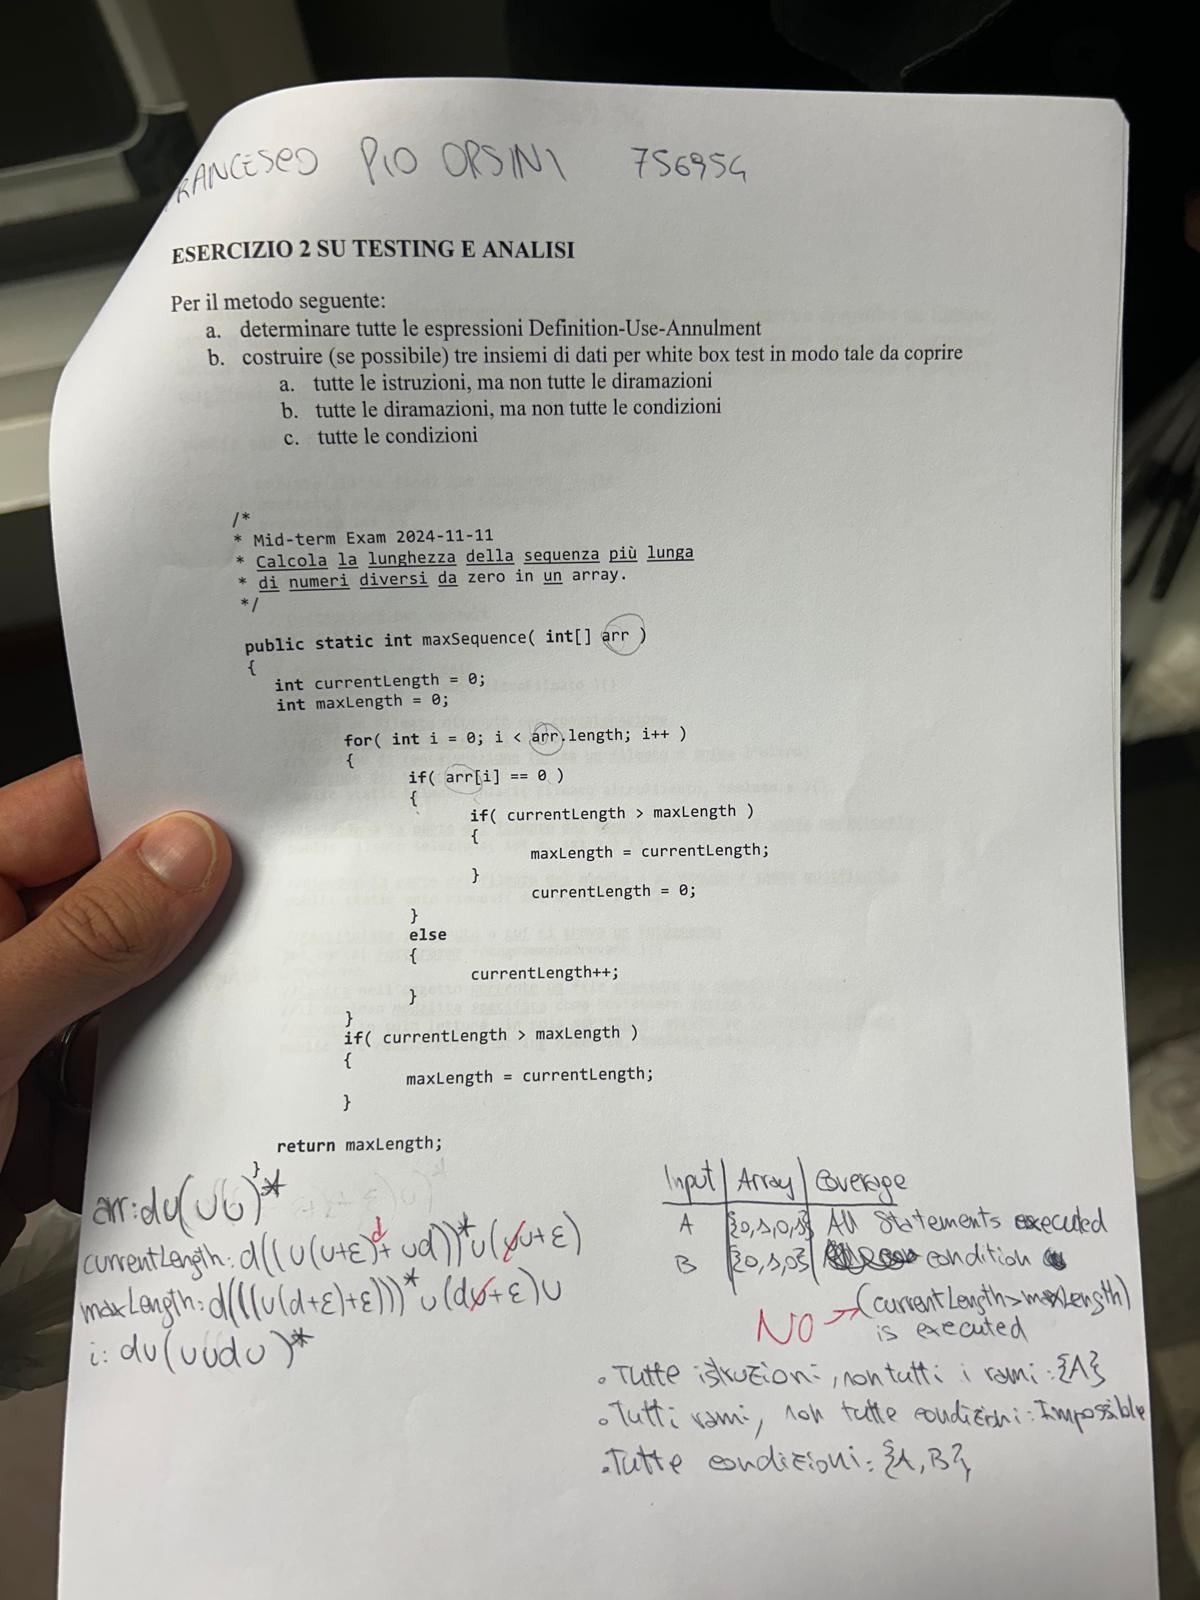 RANCESCO PIO ORSINI 756954
ESERCIZIO 2 SU TESTING E ANALISI
Per il metodo seguente:
a. determinare tutte le espressioni Definition-Use-Annulment
b. costruire (se possibile) tre insiemi di dati per white box test in modo tale da coprire
a. tutte le istruzioni, ma non tutte le diramazioni
b. tutte le diramazioni, ma non tutte le condizioni
c. tutte le condizioni
/*
* Mid-term Exam 2024-11-11
* Calcola la lunghezza della sequenza più lunga
* di numeri diversi da zero in un array.
*/
public static int maxSequence( int[] arr )
{
int currentLength = 0;
int maxLength = 0;
for( int i = 0; i < arr.length; i++ )
{
if( arr[i] == 0 )
{
if( currentLength > maxLength )
{
maxLength = currentLength;
}
currentLength = 0;
}
else
{
currentLength++;
}
}
if( currentLength > maxLength )
{
maxLength = currentLength;
}
return maxLength;
}
arr: du(uu)*
currentLength: d((u(u+ε)d+ ud))*u(u+ε)
maxLength: d(((u(d+ε)+ε)))*u(d+ε)u
i: du(uudu)*
Input | Array | Coverage
A {0,1,0,1} All statements executed
B {0,1,0} condition
(currentLength>maxLength)
NO → is executed
• Tutte istruzioni, non tutti i rami: {A}
• Tutti rami, non tutte condizioni: Impossible
• Tutte condizioni: {A, B}